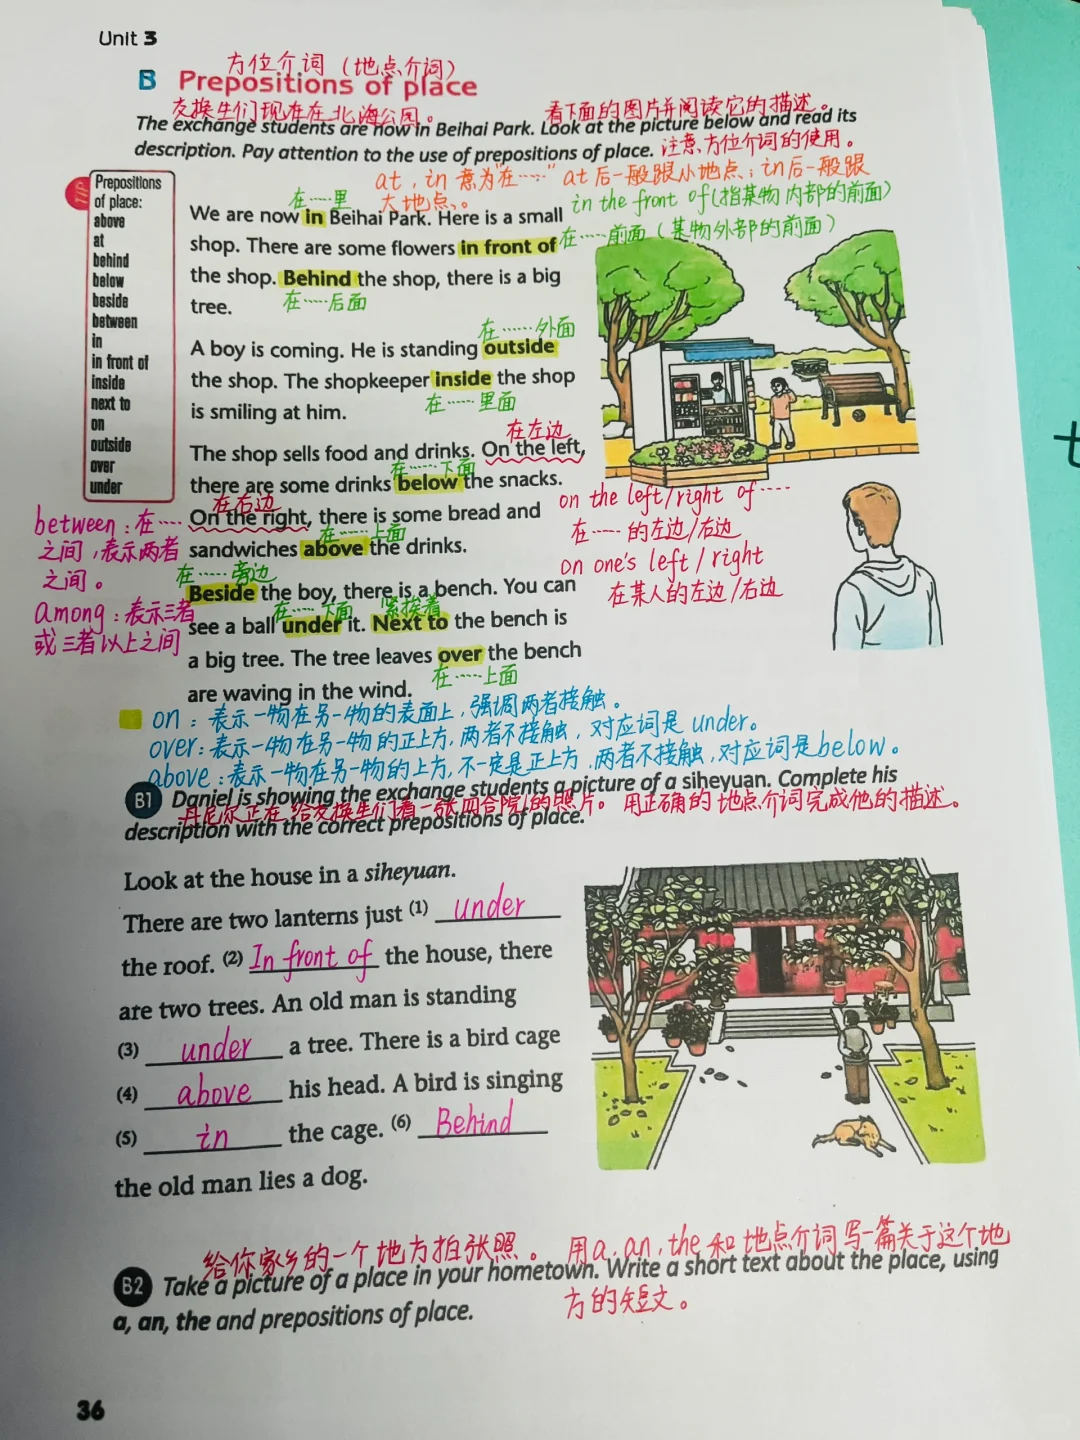 Unit 3
方位介词（地点介词）
B Prepositions of place
交换生们现在在北海公园。 看下面的图片并阅读它的描述。
The exchange students are now in Beihai Park. Look at the picture below and read its
description. Pay attention to the use of prepositions of place. 注意方位介词的使用。
TIP
Prepositions
of place:
above
at
behind
below
beside
between
in
in front of
inside
next to
on
outside
over
under
at，in 意为“在……” at 后一般跟小地点；in后一般跟
大地点。
在……里
in the front of(指某物内部的前面)
We are now in Beihai Park. Here is a small
shop. There are some flowers in front of
在……前面（某物外部的前面）
the shop. Behind the shop, there is a big
在……后面
tree.
在……外面
A boy is coming. He is standing outside
the shop. The shopkeeper inside the shop
在……里面
is smiling at him.
在左边
The shop sells food and drinks. On the left,
在……下面
there are some drinks below the snacks.
在右边
On the right, there is some bread and
在……上面
sandwiches above the drinks.
在……旁边
Beside the boy, there is a bench. You can
在……下面 紧挨着
see a ball under it. Next to the bench is
a big tree. The tree leaves over the bench
在……上面
are waving in the wind.
on the left/right of ……
在……的左边/右边
on one's left/right
在某人的左边/右边
between：在……
之间，表示两者
之间。
among：表示三者
或三者以上之间
on：表示一物在另一物的表面上，强调两者接触。
over：表示一物在另一物的正上方，两者不接触，对应词是 under。
above：表示一物在另一物的上方，不一定是正上方，两者不接触，对应词是below。
B1 Daniel is showing the exchange students a picture of a siheyuan. Complete his
丹尼尔正在给交换生们看一张四合院的照片。用正确的地点介词完成他的描述。
description with the correct prepositions of place.
Look at the house in a siheyuan.
There are two lanterns just (1) under
the roof. (2) In front of the house, there
are two trees. An old man is standing
(3) under a tree. There is a bird cage
(4) above his head. A bird is singing
(5) in the cage. (6) Behind
the old man lies a dog.
给你家乡的一个地方拍张照。 用a，an，the 和地点介词写一篇关于这个地
B2 Take a picture of a place in your hometown. Write a short text about the place, using
方的短文。
a, an, the and prepositions of place.
36